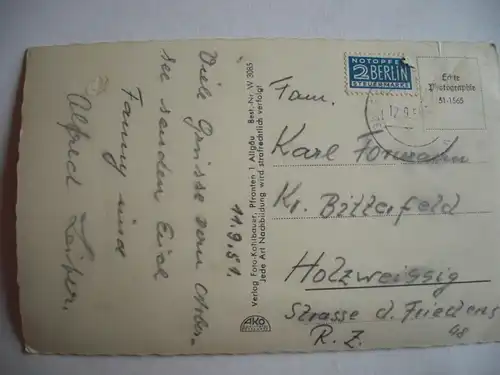 Viele Grüsse vom Ober-
see senden Euch
Fanny und
Alfred
11.9.51.
Verlag Foto-Kohlbauer, Pfronten 1 Allgäu Best.-Nr. W 3085
Jede Art Nachbildung wird strafrechtlich verfolgt
AKO
NOTOPFER
2 BERLIN
STEUERMARKE
Echte
Photographie
51-1565
12.9.5
Fam.
Karl
Kr. Bitterfeld
Holzweissig
Strasse d. Friedens
48
R. Z.